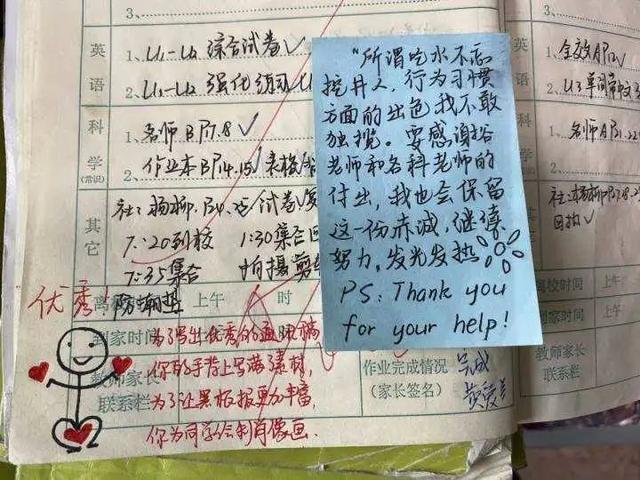 3、
英语
1、U1-U2 综合试卷✓
2、U1-U2 强化练习
科学
(常识)
1、名师B P7.8✓
2、作业本B P14.15✓
其它
7:20到校 1:30集合
7:35集合 拍摄剪
优秀!
上午 时
到家时间
教师家长
联系栏
为了写出优秀的通讯稿
你的手背上写满素材,
为了让黑板报更加丰富,
你为同学绘制肖像画.
作业完成情况
(家长签名)
完成
“所谓吃水不忘
挖井人,行为习惯
方面的出色我不敢
独揽。要感谢谷
老师和各科老师的
付出,我也会保留
这一份赤诚,继续
努力,发光发热
PS: Thank you
for your help!
英语
1、全效A P12✓
2、U3单词
科学
(常识)
1、名师A P21.22
2、
其它
回执✓
离校时间
到家时间
教师家长
联系栏